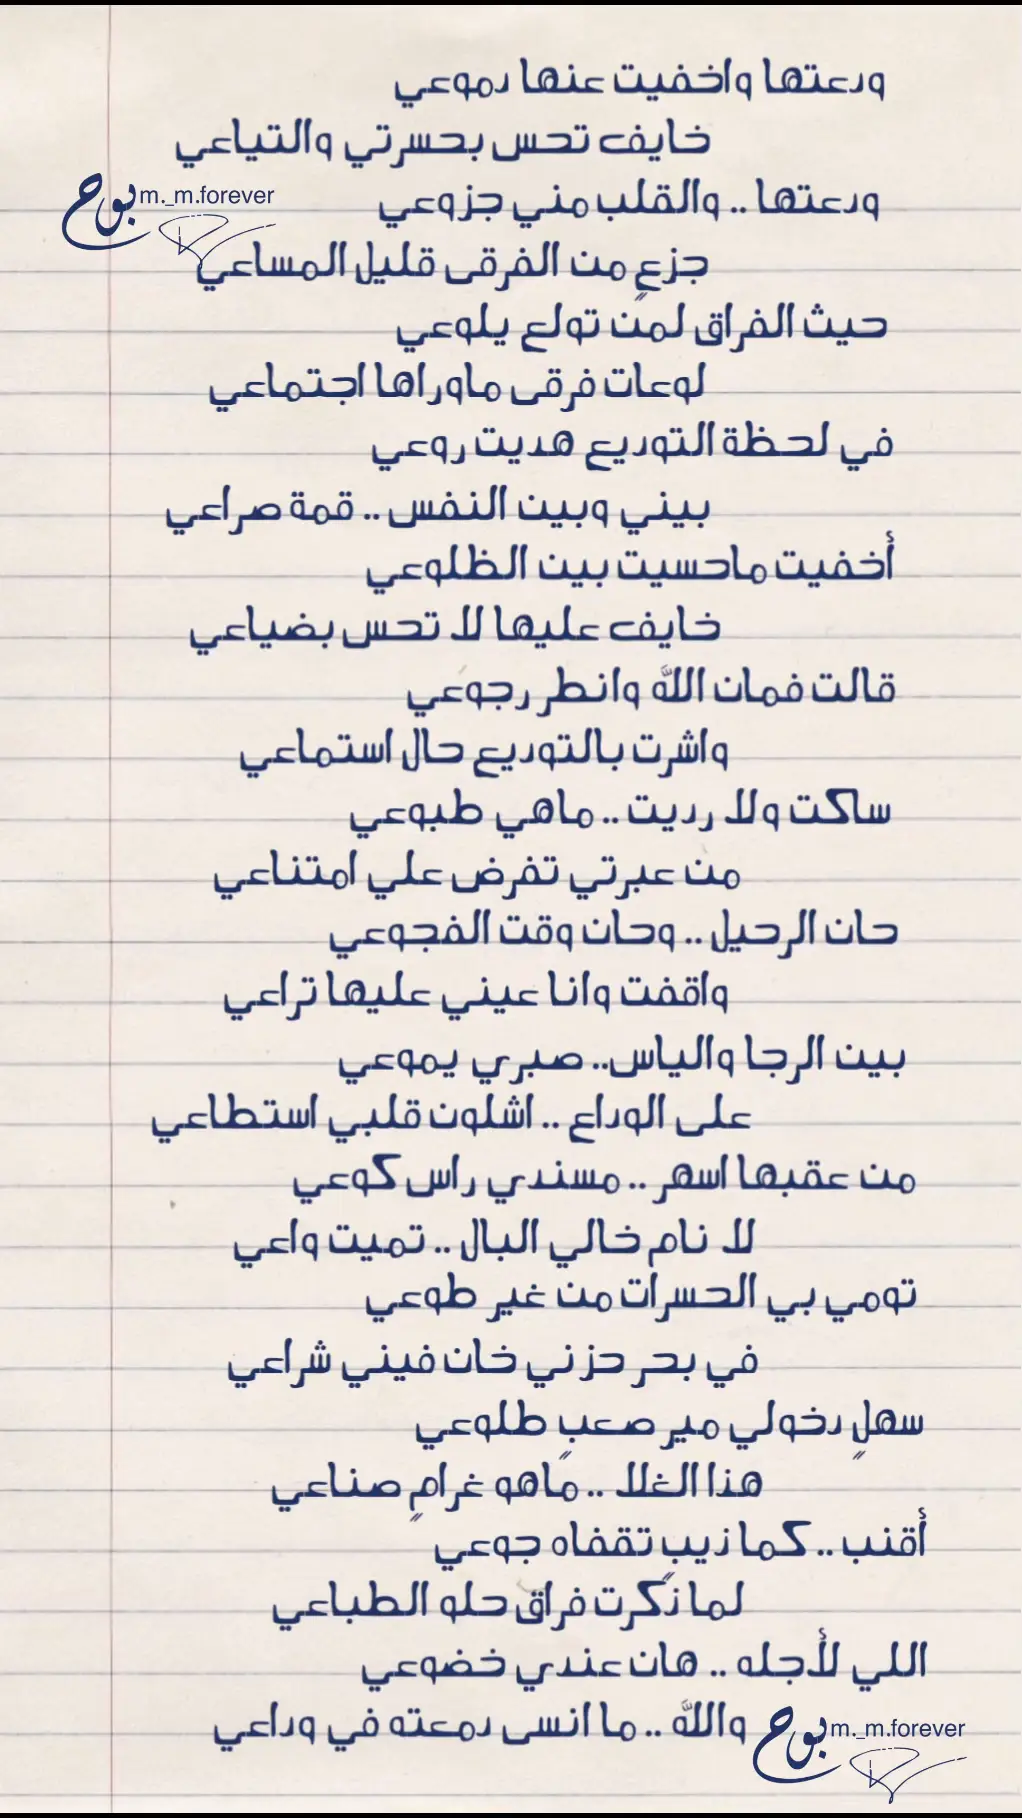 ودعتها واخفيت عنها دموعي
خايف تحس بحسرتي والتياعي
بوح m._m.forever
ودعتها .. والقلب مني جزوعي
جزعٍ من الفرقى قليل المساعي
حيث الفراق لمن تولع يلوعي
لوعات فرقى ماوراها اجتماعي
في لحظة التوديع هديت روعي
بيني وبين النفس .. قمة صراعي
أخفيت ماحسيت بين الظلوعي
خايف عليها لا تحس بضياعي
قالت فمان الله وانطر رجوعي
واشرت بالتوديع حال استماعي
ساكت ولا رديت .. ماهي طبوعي
من عبرتي تفرض علي امتناعي
حان الرحيل .. وحان وقت الفجوعي
واقفت وانا عيني عليها تراعي
بين الرجا والياس.. صبري يموعي
على الوداع .. اشلون قلبي استطاعي
من عقبها اسهر .. مسندي راس كوعي
لا نام خالي البال .. تميت واعي
تومي بي الحسرات من غير طوعي
في بحر حزني خان فيني شراعي
سهلٍ دخولي مير صعبٍ طلوعي
هذا الغلا .. ماهو غرامٍ صناعي
أقنب .. كما ذيبٍ تقفاه جوعي
لما ذكرت فراق حلو الطباعي
اللي لأجله .. هان عندي خضوعي
والله .. ما انسى دمعته في وداعي
بوح m._m.forever